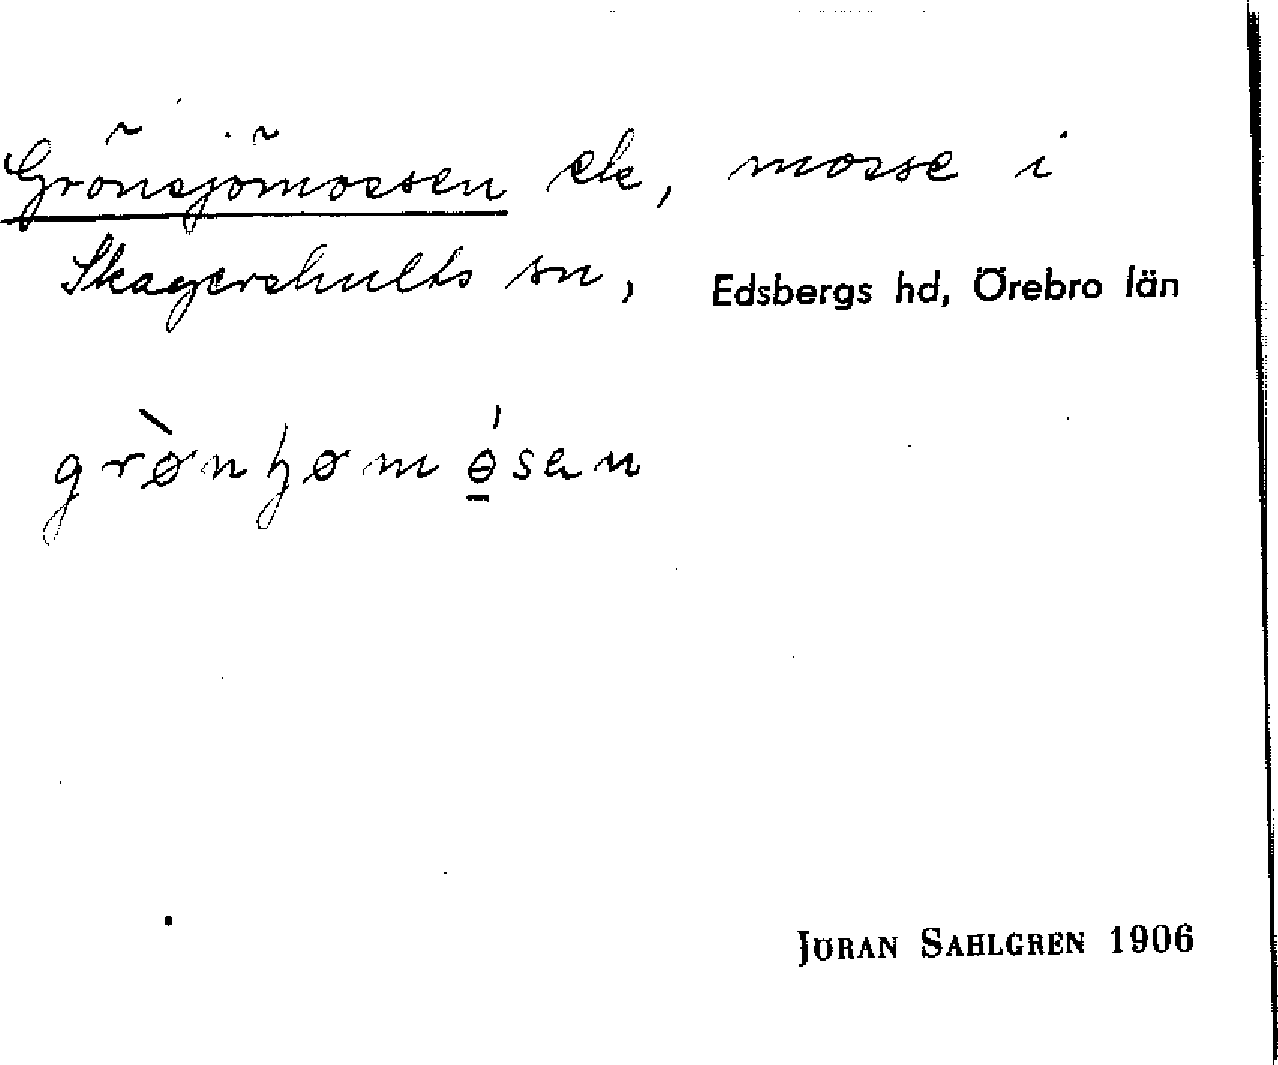 Grönsjömossen ek, mosse i
Skagershults sn, Edsbergs hd, Örebro län
JÖRAN SAHLGREN 1906